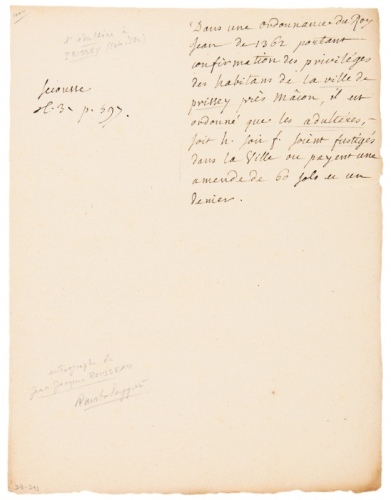 Dans une ordonnance du Roy
Jean de 1362 portant
confirmation des priviléges
des habitans de la ville de
prissey près Mâcon, il est
ordonné que les adulteres,
soit h. soit f. soient fustigés
dans la Ville ou payent une
amende de 60 sols et un
denier.
Secousse
t. 3. p. 597.
autographe de
Jean Jacques ROUSSEAU